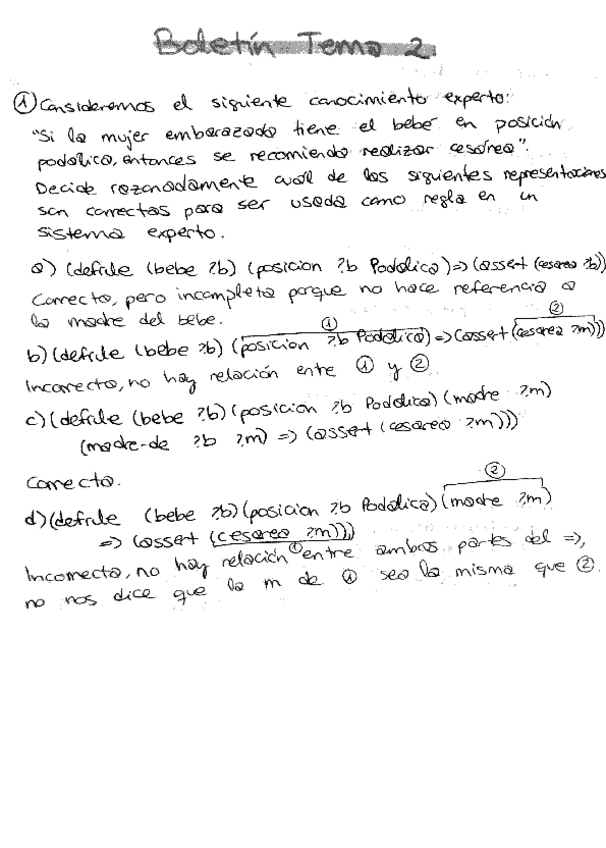 Boletín Tema 2
① Consideremos el siguiente conocimiento experto:
"Si la mujer embarazada tiene el bebé en posición
podálica, entonces se recomienda realizar cesárea".
Decide razonadamente cuál de las siguientes representaciones
son correctas para ser usada como regla en un
sistema experto.
a) (defrule (bebe ?b) (posicion ?b Podalica) => (assert (cesarea ?b))
Correcto, pero incompleta porque no hace referencia a
la madre del bebe.
① ②
b) (defrule (bebe ?b) (posicion ?b Podalica) => (assert (cesarea ?m)))
Incorrecto, no hay relación entre ① y ②.
c) (defrule (bebe ?b) (posicion ?b Podalica) (madre ?m)
(madre-de ?b ?m) => (assert (cesarea ?m)))
Correcto.
②
d) (defrule (bebe ?b) (posicion ?b Podalica) (madre ?m)
=> (assert (cesarea ?m)))
①
Incorrecto, no hay relación entre ambas partes del =>,
no nos dice que la m de ① sea la misma que ②.